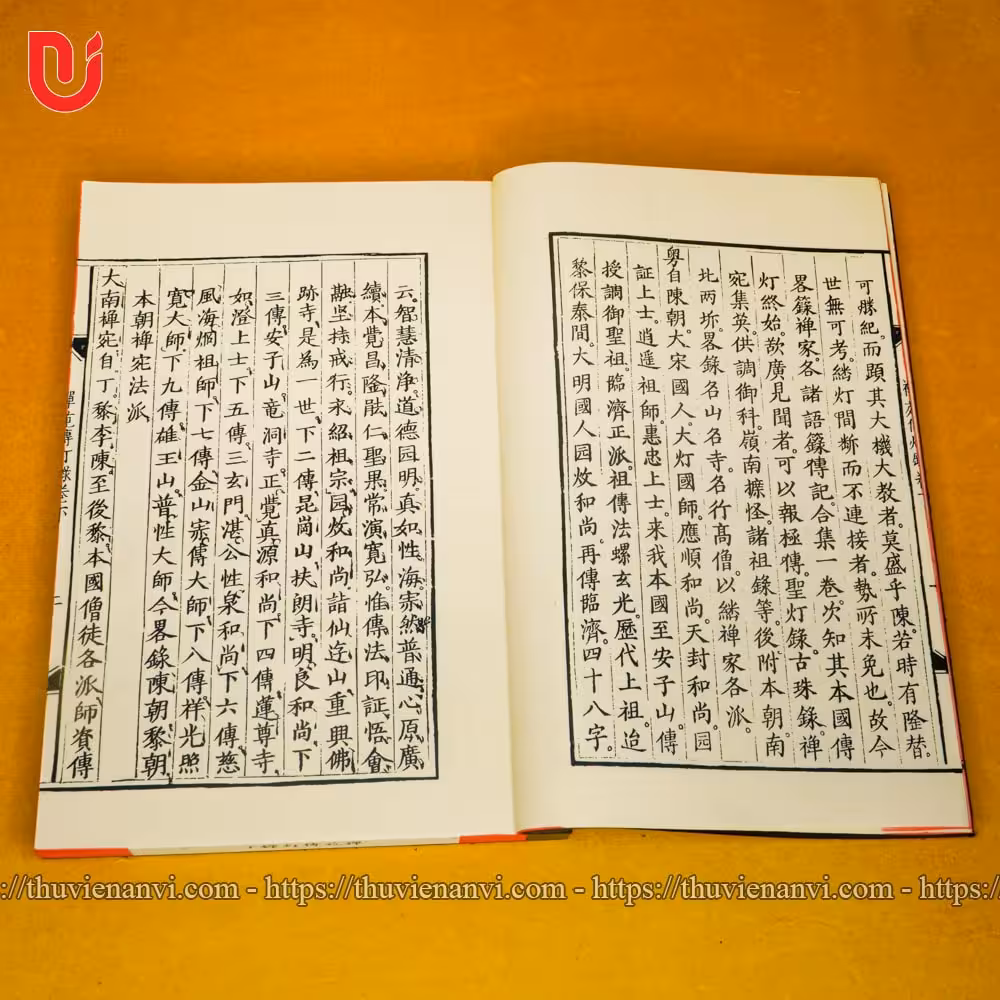 可勝紀。而頭其大機大教者。莫盛乎陳。若時有隆替。
世無可考。綉灯間斷而不連接者。勢所未免也。故今
畧籙禅家。各諸語籙傳記。合集一卷。次知其本國傳
灯終始。欲廣見聞者。可以報極傳。聖灯錄。古珠錄。禅
宛集英。供調御科。嶺南摭怪。諸祖錄等。後附本朝南
北両𣳔。畧錄名山名寺。名行髙僧。以綉禅家各派。
粤自陳朝。大宋國人。大灯國師。應順和尚。天封和尚。园
証上士。逍遥祖師。惠忠上士。来我本國至安子山。傳
授調御聖祖。臨濟正派。祖傳法螺玄光。歷代上祖。迨
黎保泰間。大明國人。园炆和尚。再傳臨濟。四十八字。
云。智慧清净。道德园明。真如性海。寂然普通。心原廣
續。本覺昌隆。䏻仁聖果。常演寬弘。惟傳法印。証悟會
融。坚持戒行。来紹祖宗。园炆和尚。詰仙迯山。重興佛
跡寺。是為一世。下二傳昆崗山扶朗寺。明良和尚。下
三傳安子山。竜洞寺。正覺真源和尚。下四傳蓮尊寺
如澄上士。下五傳三玄門。湛公性泉和尚。下六傳慈
風海㷰祖師。下七傳金山寂傳大師。下八傳祥光照
寬大師。下九傳雄王山。普性大師。今畧錄陳朝。黎朝
本朝禅宛法派
大南禅宛自丁。黎李陳。至後黎本國僧徒各派師資傳
https://thuvienanvi.com - https://thuvienanvi.com - https://thuvienanvi.com